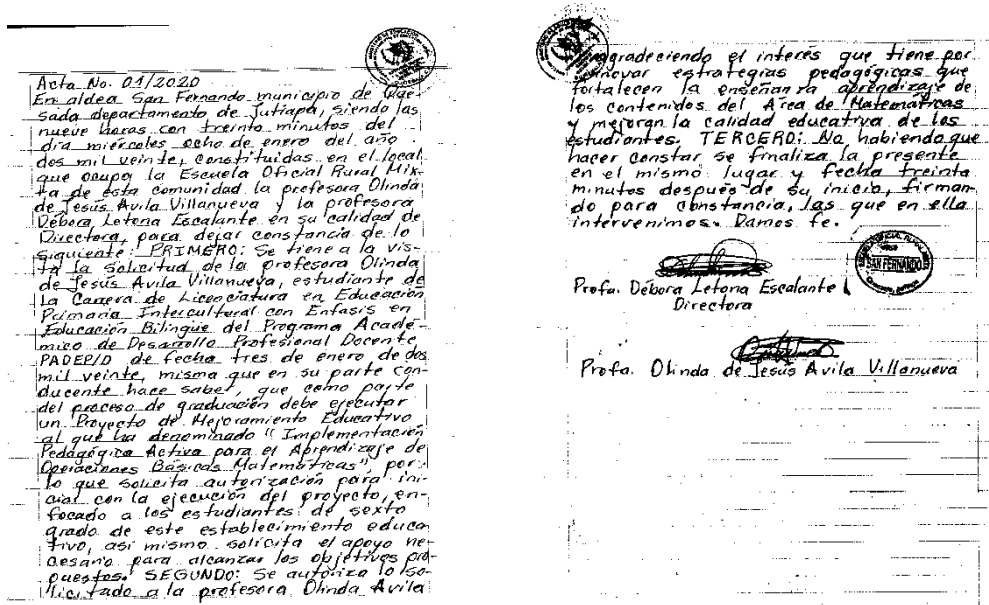 Acta No. 01/2020
En aldea San Fernando municipio de Que
sada departamento de Jutiapa, siendo las
nueve horas con treinta minutos del
día miércoles ocho de enero del año
dos mil veinte, constituidas en el local
que ocupa la Escuela Oficial Rural Mix-
ta de esta comunidad la profesora Olinda
de Jesús Avila Villanueva y la profesora
Débora Letona Escalante en su calidad de
Directora, para dejar constancia de lo
siguiente: PRIMERO: Se tiene a la vis-
ta la solicitud de la profesora Olinda
de Jesús Avila Villanueva, estudiante de
la Carrera de Licenciatura en Educación
Primaria Intercultural con Enfasis en
Educación Bilingüe del Programa Acadé-
mico de Desarrollo Profesional Docente
PADEP/D de fecha tres de enero de dos
mil veinte, misma que en su parte con-
ducente hace saber, que como parte
del proceso de graduación debe ejecutar
un Proyecto de Mejoramiento Educativo
al que ha denominado "Implementación
Pedagógica Activa para el Aprendizaje de
Operaciones Básicas Matemáticas", por
lo que solicita autorización para ini-
ciar con la ejecución del proyecto, en-
focado a los estudiantes de sexto
grado de este establecimiento educa
tivo, así mismo solicita el apoyo ne-
cesario para alcanzar los objetivos pro-
puestos. SEGUNDO: Se autoriza lo so-
licitado a la profesora Olinda Avila
agradeciendo el interés que tiene por
innovar estrategias pedagógicas que
fortalecen la enseñanza aprendizaje de
los contenidos del Area de Matemáticas
y mejoran la calidad educativa de los
estudiantes. TERCERO: No habiendo que
hacer constar se finaliza la presente
en el mismo lugar y fecha treinta
minutos después de su inicio, firman-
do para constancia, las que en ella
intervenimos. Damos fe.
SAN FERNANDO
Profa. Débora Letona Escalante
Directora
Profa. Olinda de Jesús Avila Villanueva